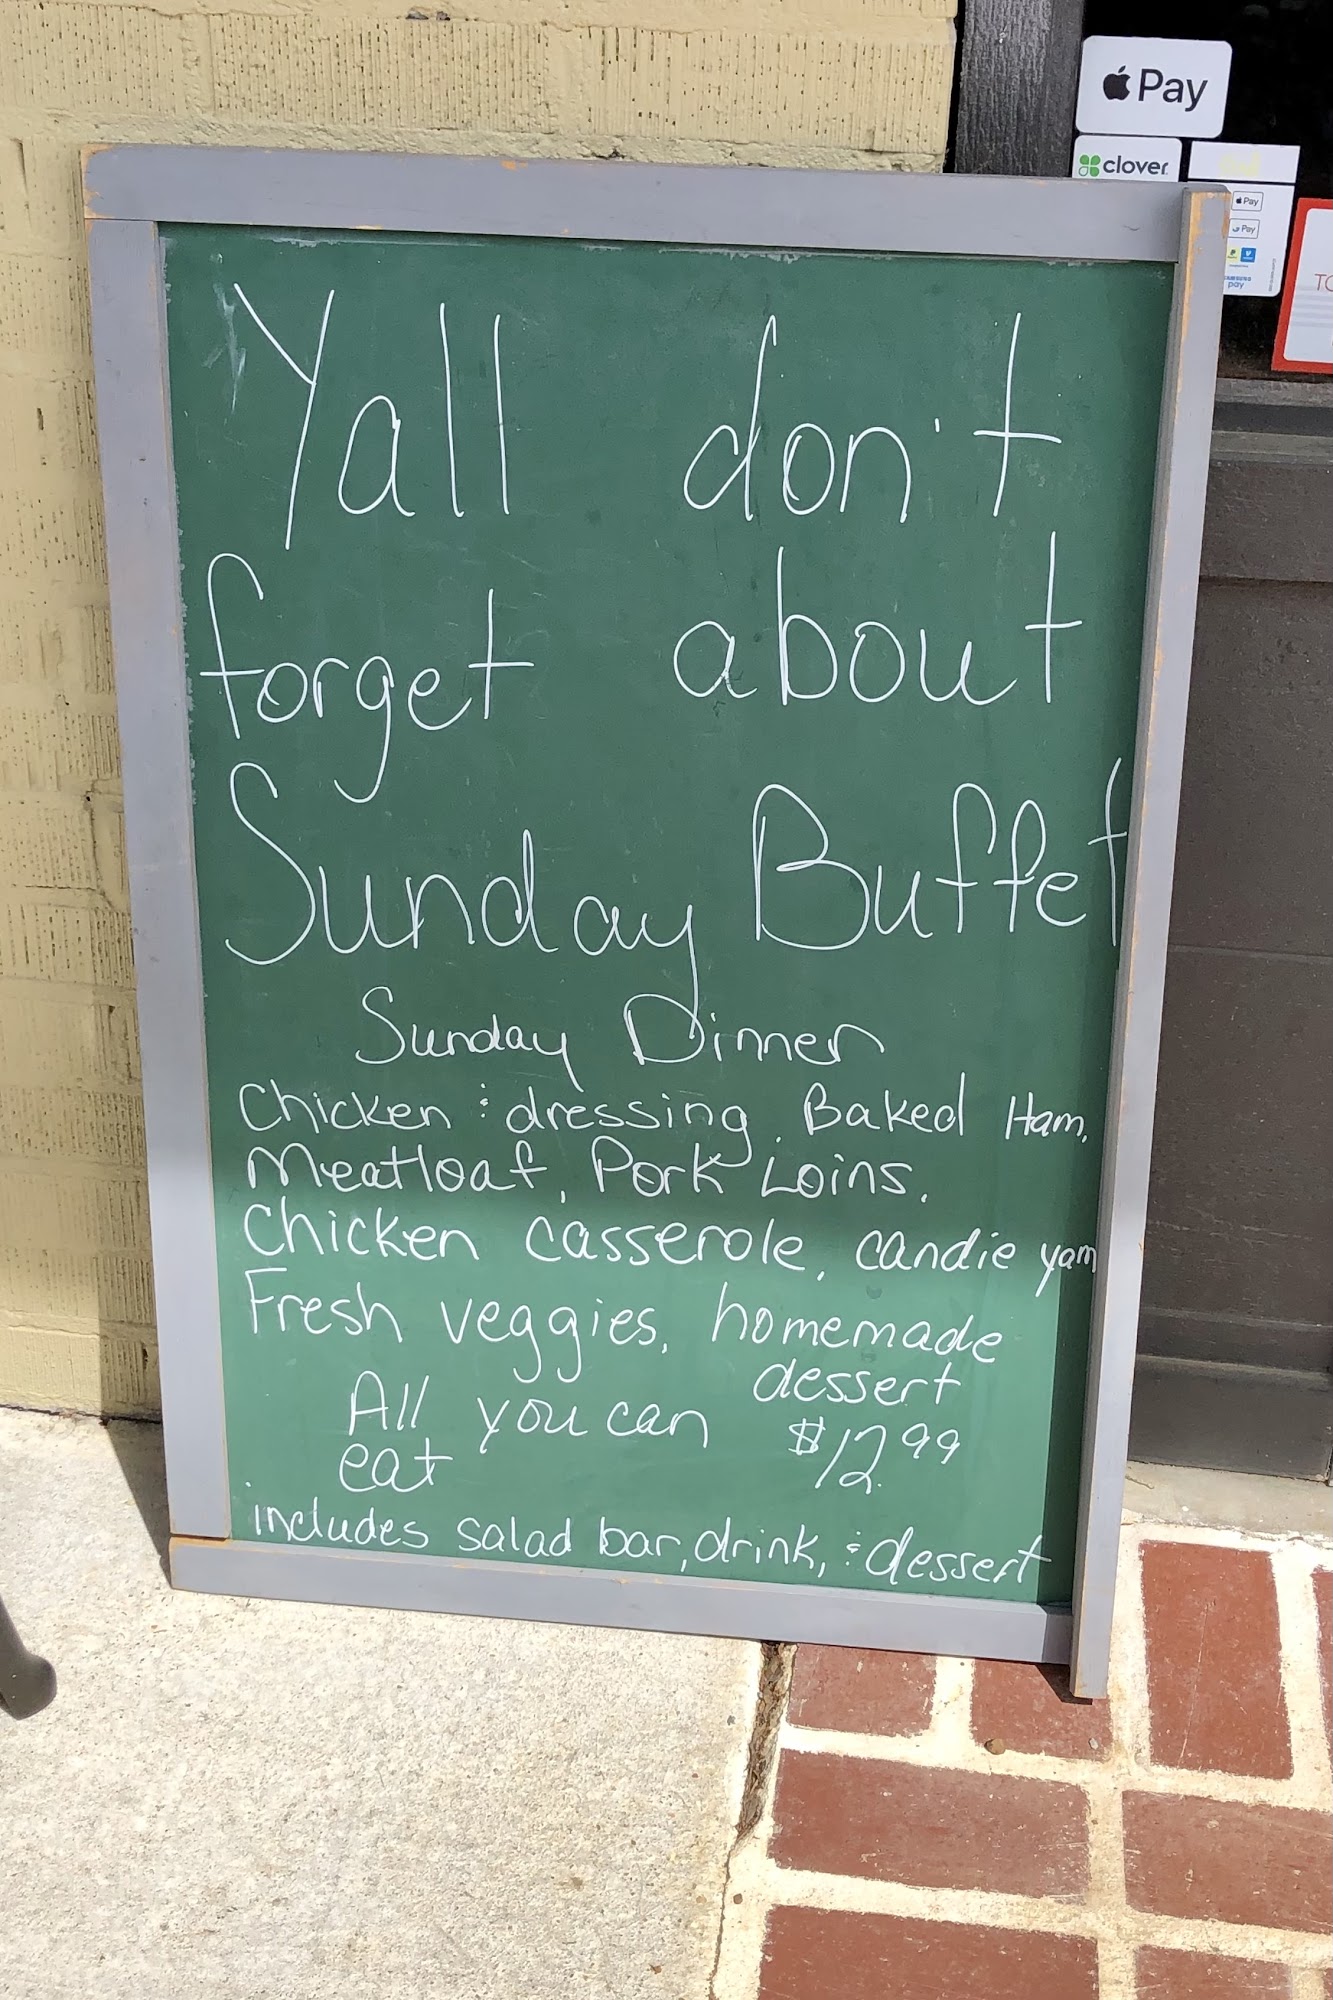 Pay
clover
Pay
Pay
SAMSUNG
pay
TO
Yall don't
forget about
Sunday Buffet
Sunday Dinner
Chicken & dressing, Baked Ham,
Meatloaf, Pork Loins,
Chicken casserole, candie yam
Fresh veggies, homemade
dessert
All you can
eat
$12.99
includes salad bar, drink, & dessert